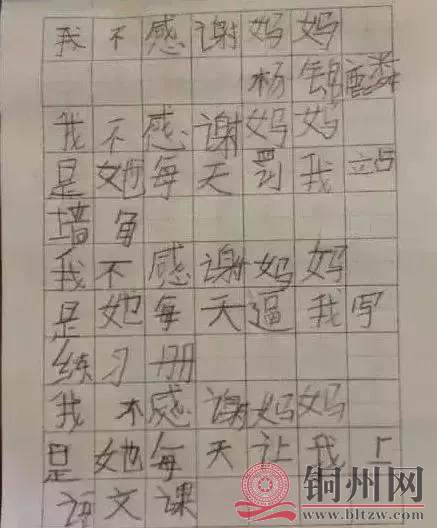 我不感谢妈妈
杨锦麟
我不感谢妈妈
是她每天罚我站
墙角
我不感谢妈妈
是她每天逼我写
练习册
我不感谢妈妈
是她每天让我上
语文课
铜州网
www.bltzw.com